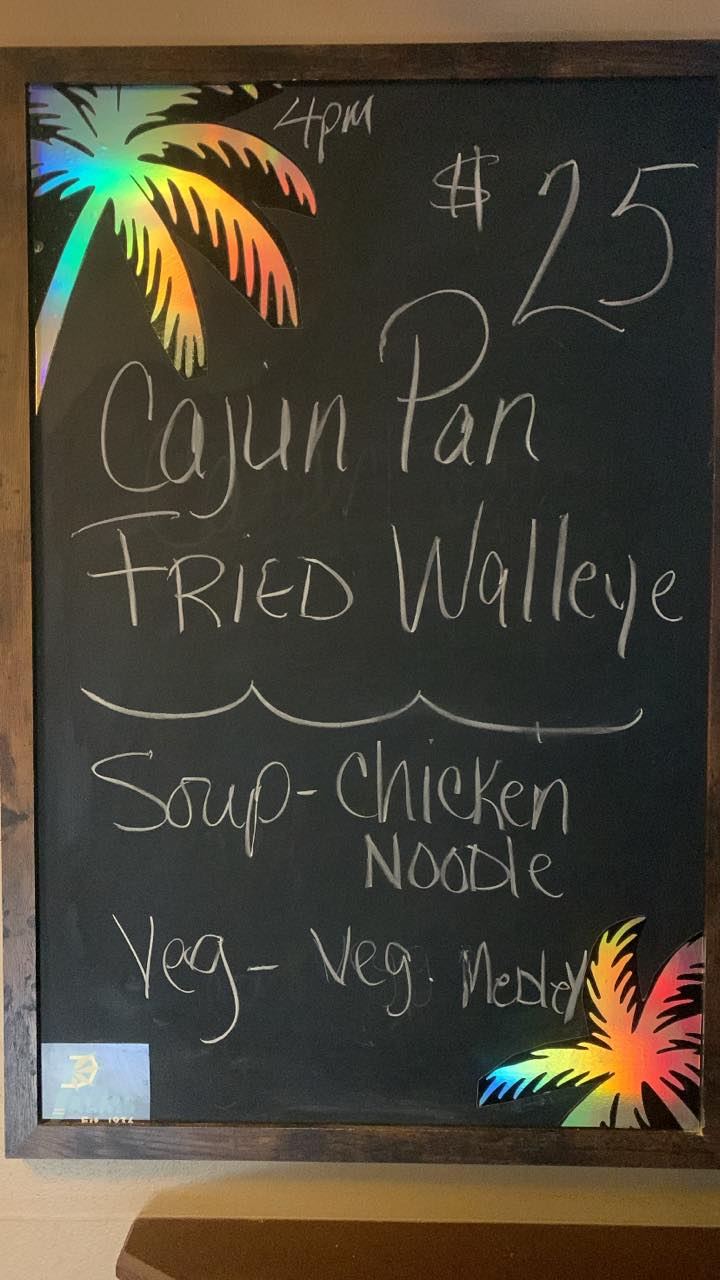 4pm
$25
Cajun Pan
FRIED Walleye
Soup- Chicken
NOODle
Veg- Veg. Medley